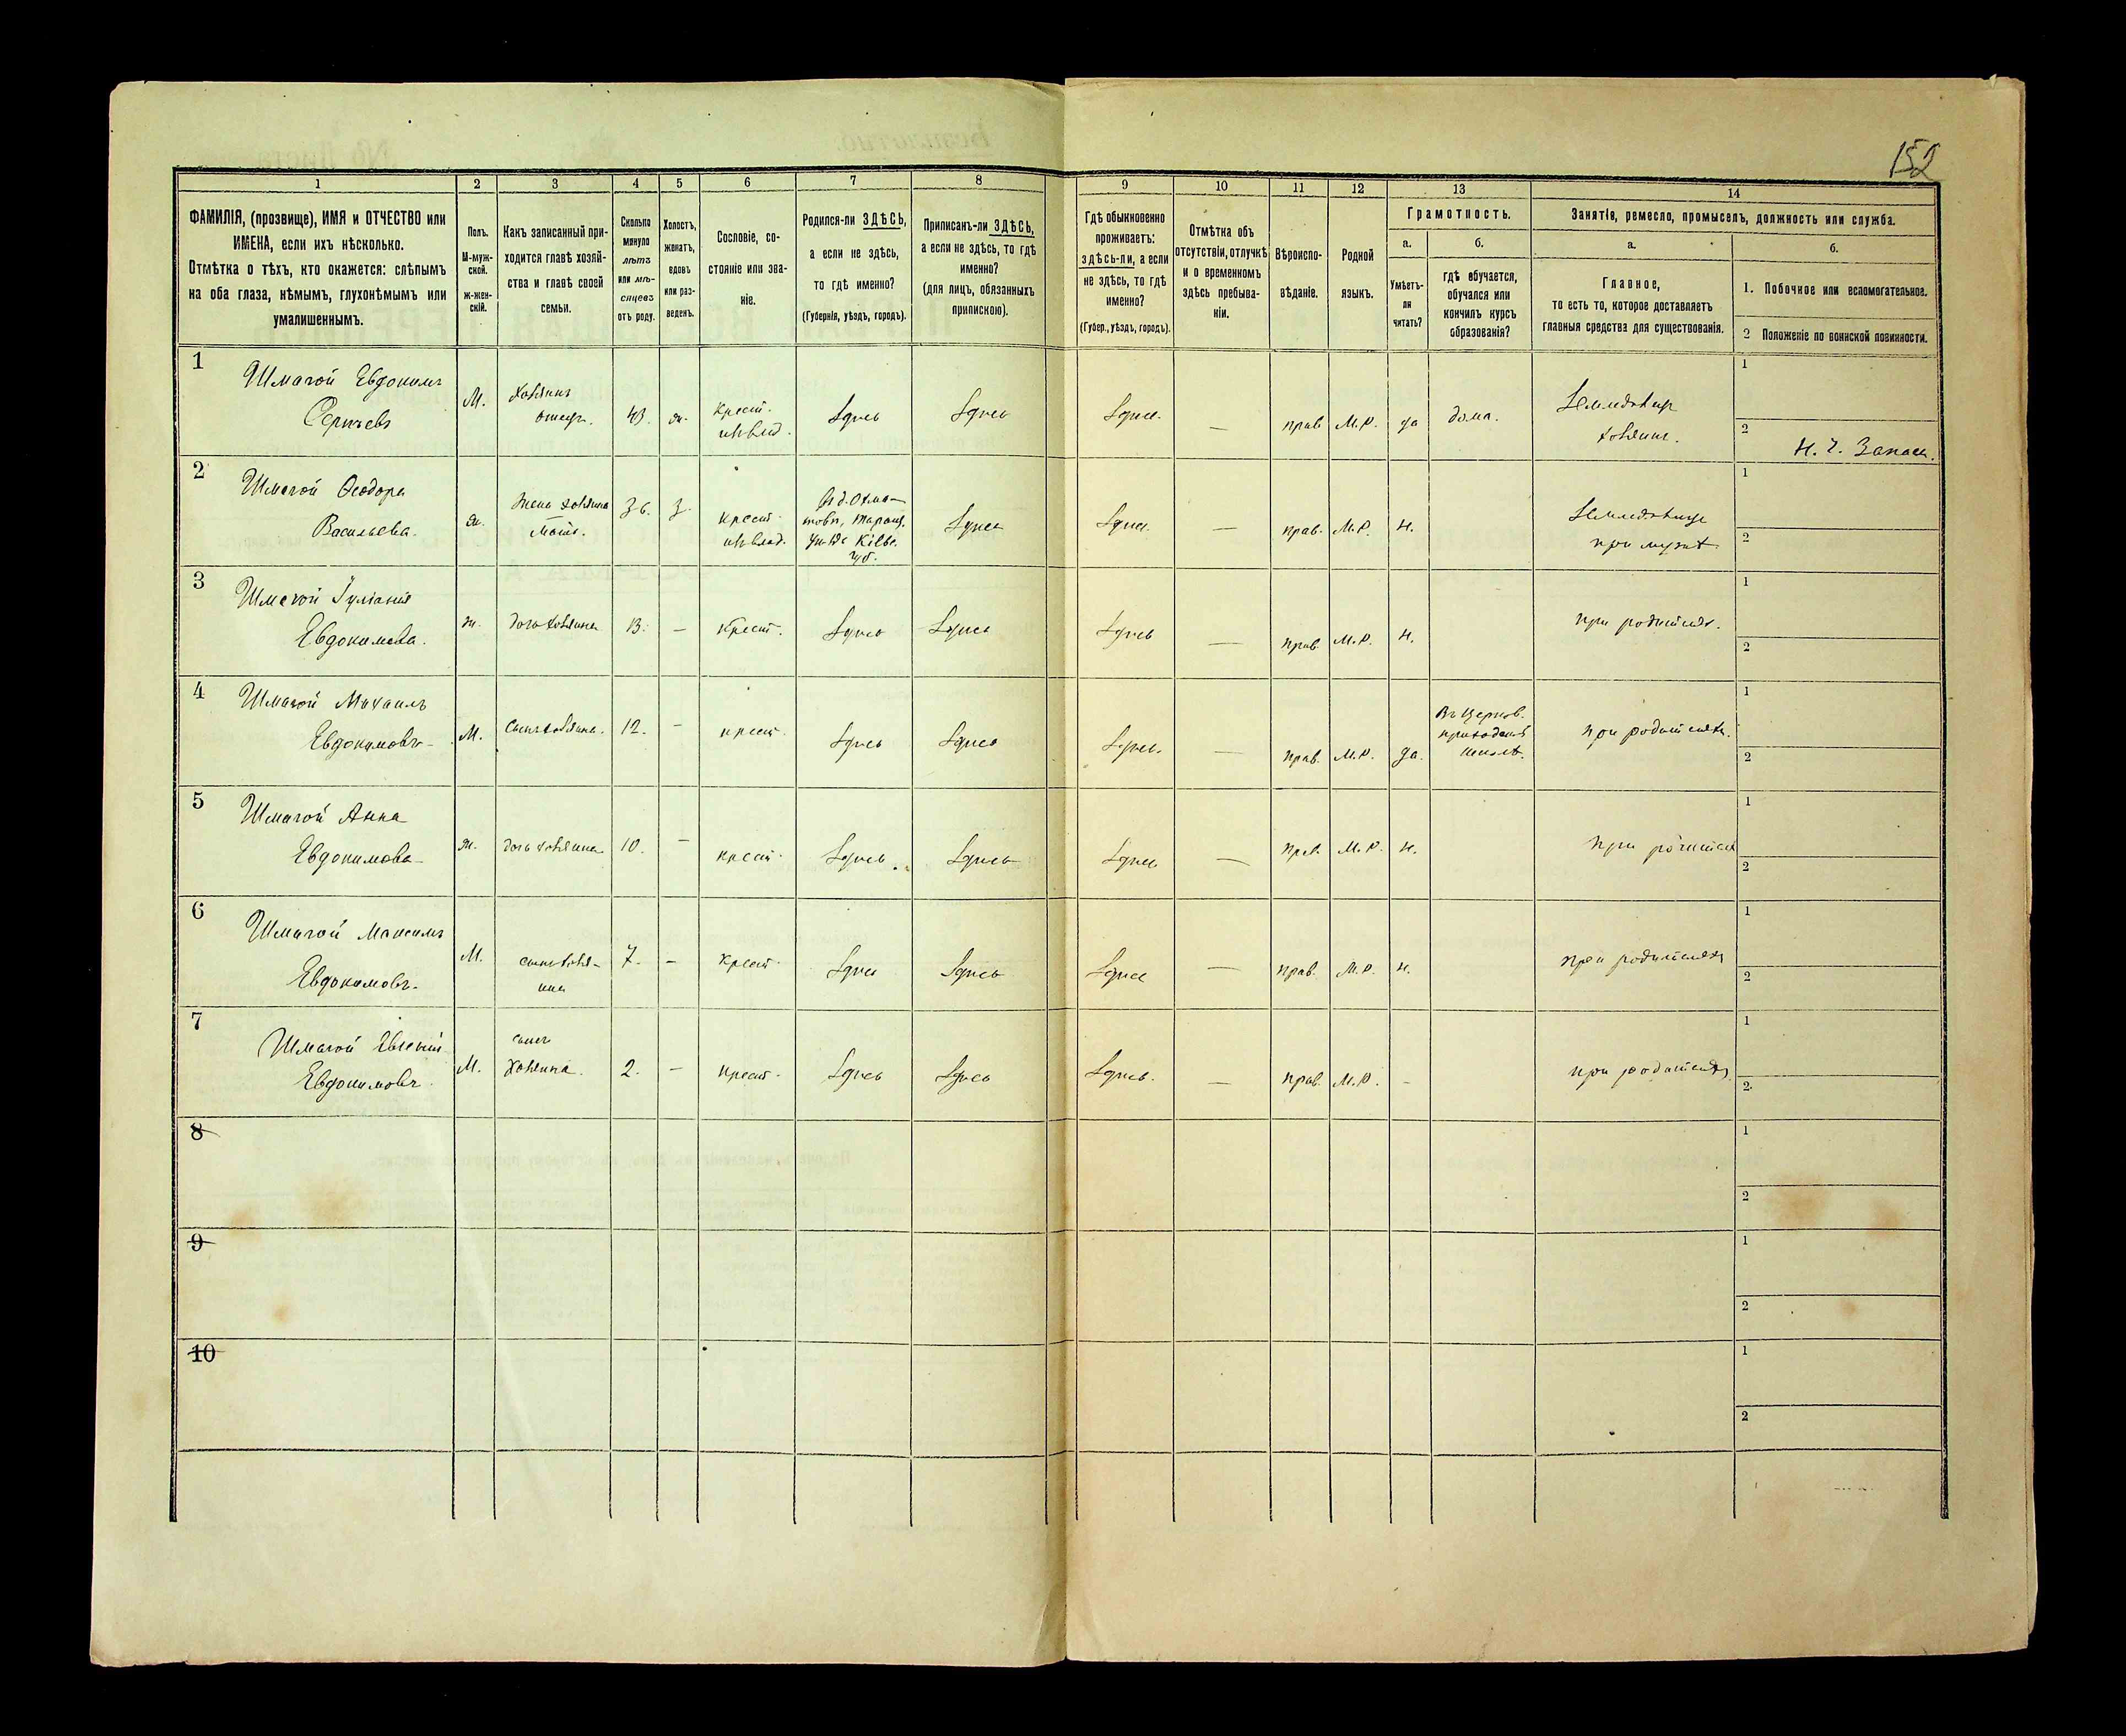 152
1 2 3 4 5 6 7 8 9 10 11 12 13 14
ФАМИЛІЯ, (прозвище), ИМЯ и ОТЧЕСТВО или
ИМЕНА, если ихъ нѣсколько.
Отмѣтка о тѣхъ, кто окажется: слѣпымъ
на оба глаза, нѣмымъ, глухонѣмымъ или
умалишеннымъ.
Полъ.
М-муж-
ской.
Ж-жен-
скій.
Какъ записанный при-
ходится главѣ хозяй-
ства и главѣ своей
семьи.
Сколько
минуло
лѣтъ
или мѣ-
сяцевъ
отъ роду.
Холостъ,
женатъ,
вдовъ
или раз-
веденъ.
Сословіе, со-
стояніе или зва-
ніе.
Родился-ли ЗДѢСЬ,
а если не здѣсь,
то гдѣ именно?
(Губернія, уѣздъ, городъ).
Приписанъ-ли ЗДѢСЬ,
а если не здѣсь, то гдѣ
именно?
(для лицъ, обязанныхъ
припискою).
Гдѣ обыкновенно
проживаетъ:
здѣсь-ли, а если
не здѣсь, то гдѣ
именно?
(Губер., уѣздъ, городъ).
Отмѣтка объ
отсутствіи, отлучкѣ
и о временномъ
здѣсь пребыва-
ніи.
Вѣроиспо-
вѣданіе.
Родной
языкъ.
Грамотность.
а.
Умѣетъ-
ли
читать?
б.
гдѣ обучается,
обучался или
кончилъ курсъ
образованія?
Занятіе, ремесло, промыселъ, должность или служба.
а.
Главное,
то есть то, которое доставляетъ
главныя средства для существованія.
б.
1. Побочное или вспомогательное.
2 Положеніе по воинской повинности.
1
Шмагой Евдокимъ
Сергѣевъ
М.
хозяинъ
отецъ.
43. ж.
крест.
Здѣсь Здѣсь Здѣсь. — прав. М.Р. да дома.
Земледѣлецъ
хозяинъ.
1
2
Н. Ч. Запаса.
2
Шмагой Ѳеодора
Васильева.
ж.
Жена хозяина
Мать.
36. З.
крест.
Здѣсь Здѣсь — прав. М.Р. н.
при мужѣ
1
2
3
Шмагой Іуліанія
Евдокимова.
ж. дочь хозяина 13. — крест. Здѣсь Здѣсь Здѣсь — прав. М.Р. н. при родителях.
1
2
4
Шмагой Михаилъ
Евдокимовъ
М. сынъ хозяина. 12. — крест. Здѣсь Здѣсь Здѣсь. — прав. М.Р. да.
Въ Церков.
приходской
школѣ.
при родителях.
1
2
5
Шмагой Анна
Евдокимова
ж. дочь хозяина 10. — крест. Здѣсь Здѣсь Здѣсь — прав. М.Р. н. при
1
2
6
Шмагой Максимъ
Евдокимовъ.
М.
сынъ хозя-
ина
7. — крест. Здѣсь Здѣсь Здѣсь — прав. М.Р. н. при родителях
1
2
7
Шмагой
Евдокимовъ.
М.
сынъ
хозяина.
2. — крест. Здѣсь Здѣсь Здѣсь. — прав. М.Р. — при родителях
1
2
8
1
2
9
1
2
10
1
2